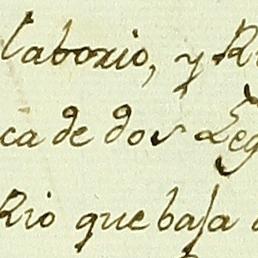 laborio, y R
ca de dos Leg
Rio que baja